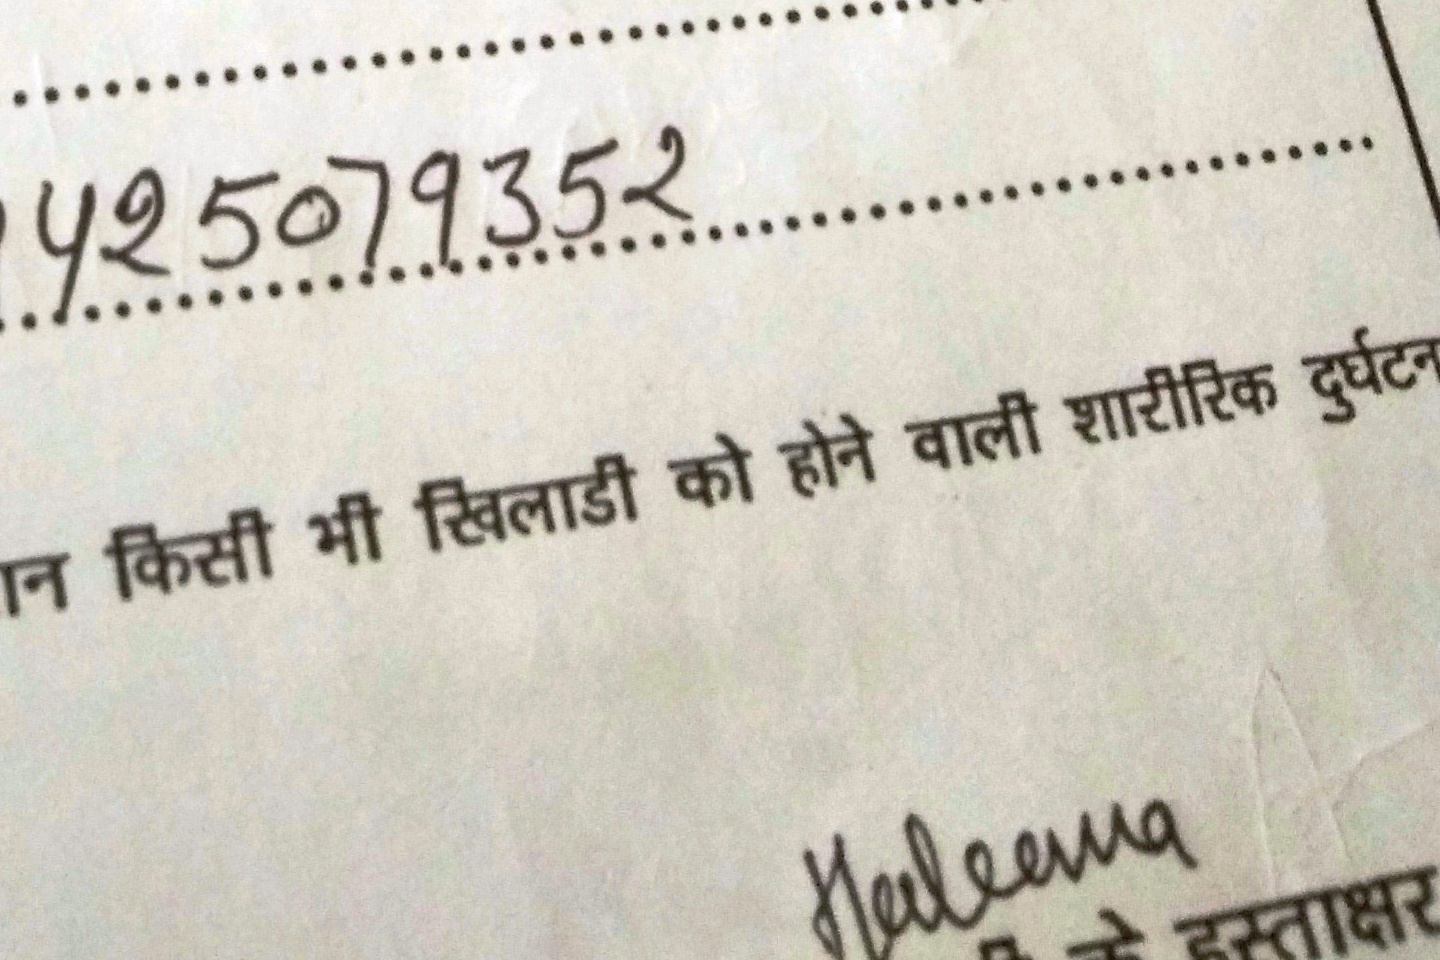 425079352
किसी भी खिलाडी को होने वाली शारीरिक
Haleema
के हस्ताक्षर